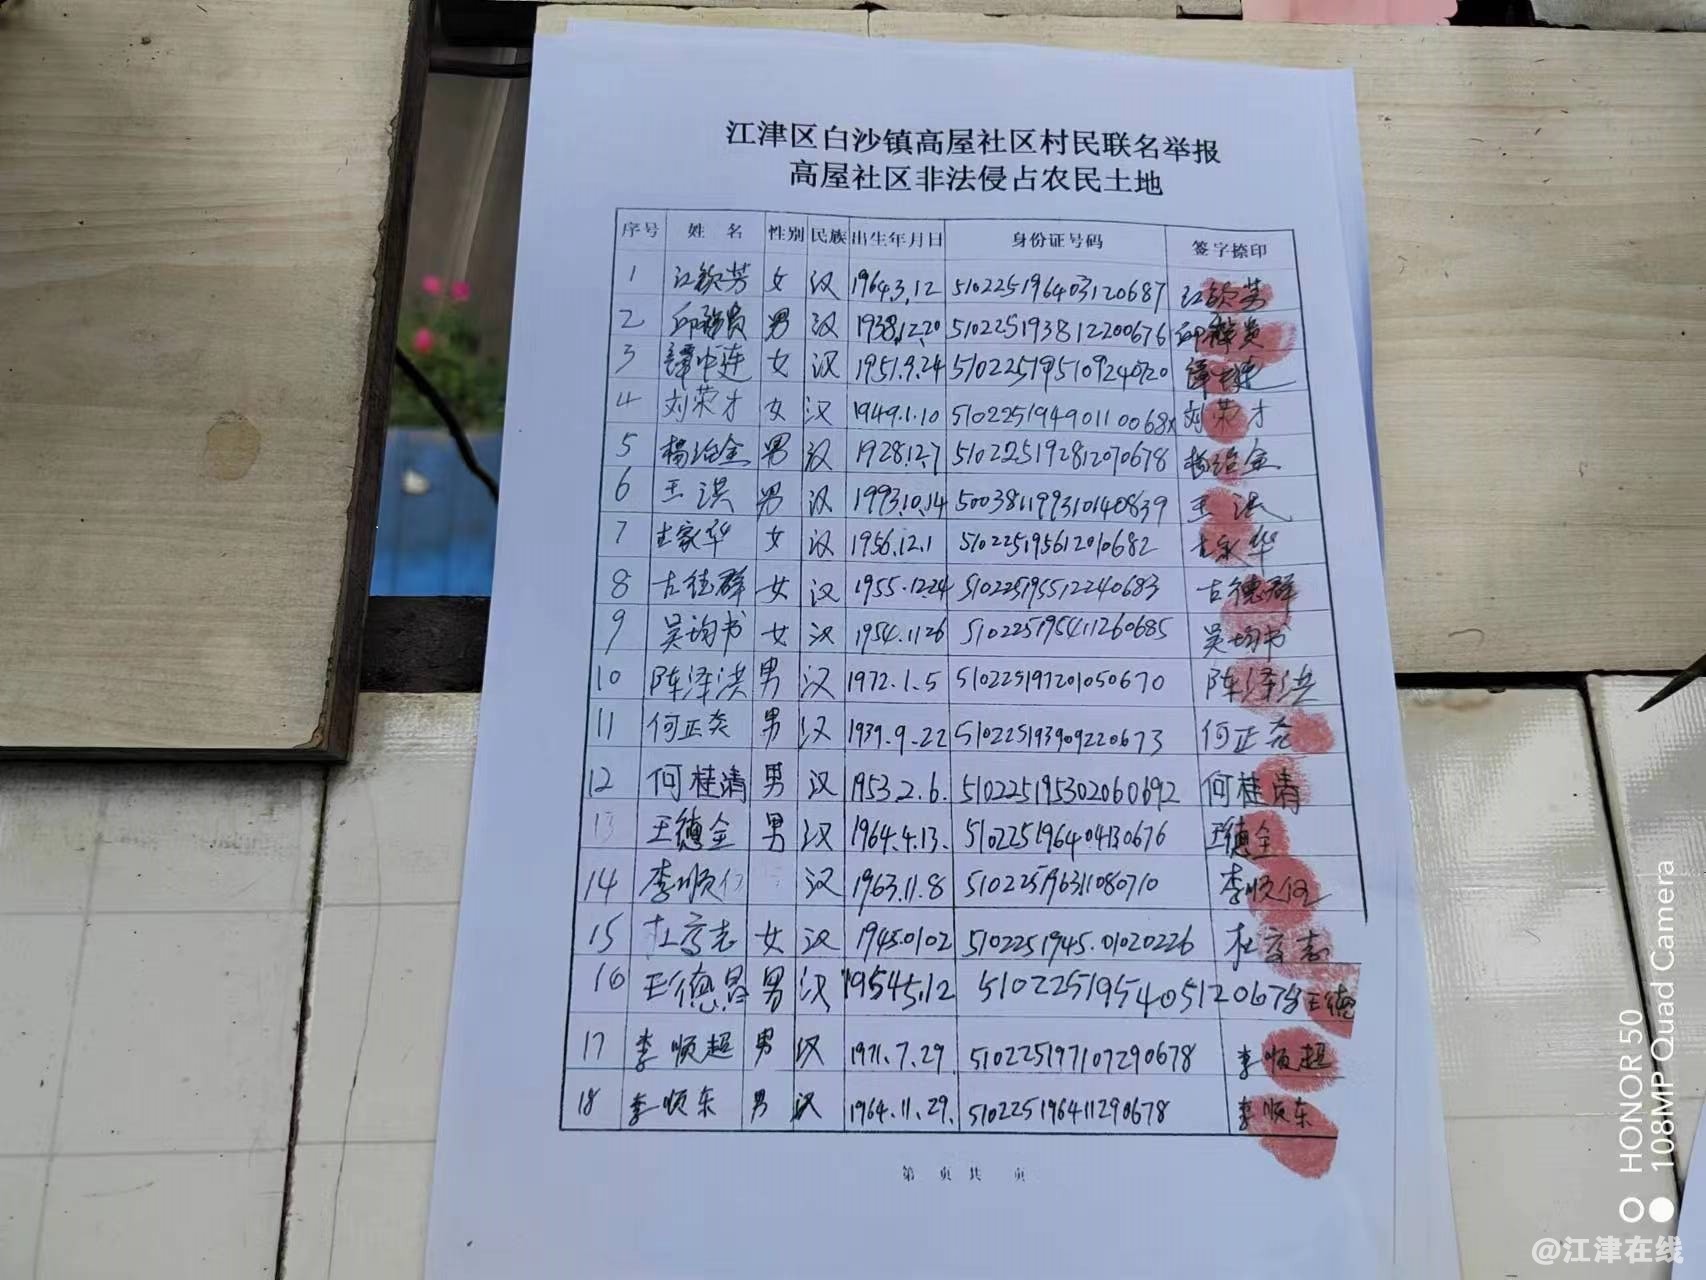 江津区白沙镇高屋社区村民联名举报
高屋社区非法侵占农民土地
序号 姓 名 性别 民族 出生年月日 身份证号码 签字捺印
1 江钦芳 女 汉 1964.3.12 510225196403120687 江钦芳
2 男 汉 1938.12.20 510225193812200676
3 谭中连 女 汉 1951.9.24 510225195109240720
4 刘荣才 女 汉 1949.1.10 51022519490110068x 刘荣才
5 杨治全 男 汉 1928.12.7 510225192812070678 杨治全
6 王洪 男 汉 1993.10.14 500381199310140839 王洪
7 女 汉 1956.12.1 510225195612010682
8 古德群 女 汉 1955.12.24 510225195512240683 古德群
9 吴均书 女 汉 1954.11.26 510225195411260685 吴均书
10 陈泽洪 男 汉 1972.1.5 510225197201050670 陈泽洪
11 何正尧 男 汉 1939.9.22 510225193909220673 何正尧
12 何桂清 男 汉 1953.2.6. 510225195302060692 何桂清
13 王德全 男 汉 1964.4.13. 510225196404130676 王德全
14 李顺 汉 1963.11.8 510225196311080710 李顺
15 女 汉 1945.0102 5102251945.01020226
16 王德昌 男 汉 1954.5.12 王德
17 李顺超 男 汉 1971.7.29. 510225197107290678 李顺超
18 李顺东 男 汉 1964.11.29. 510225196411290678 李顺东
第 页 共 页
HONOR 50
108MP Quad Camera
@江津在线